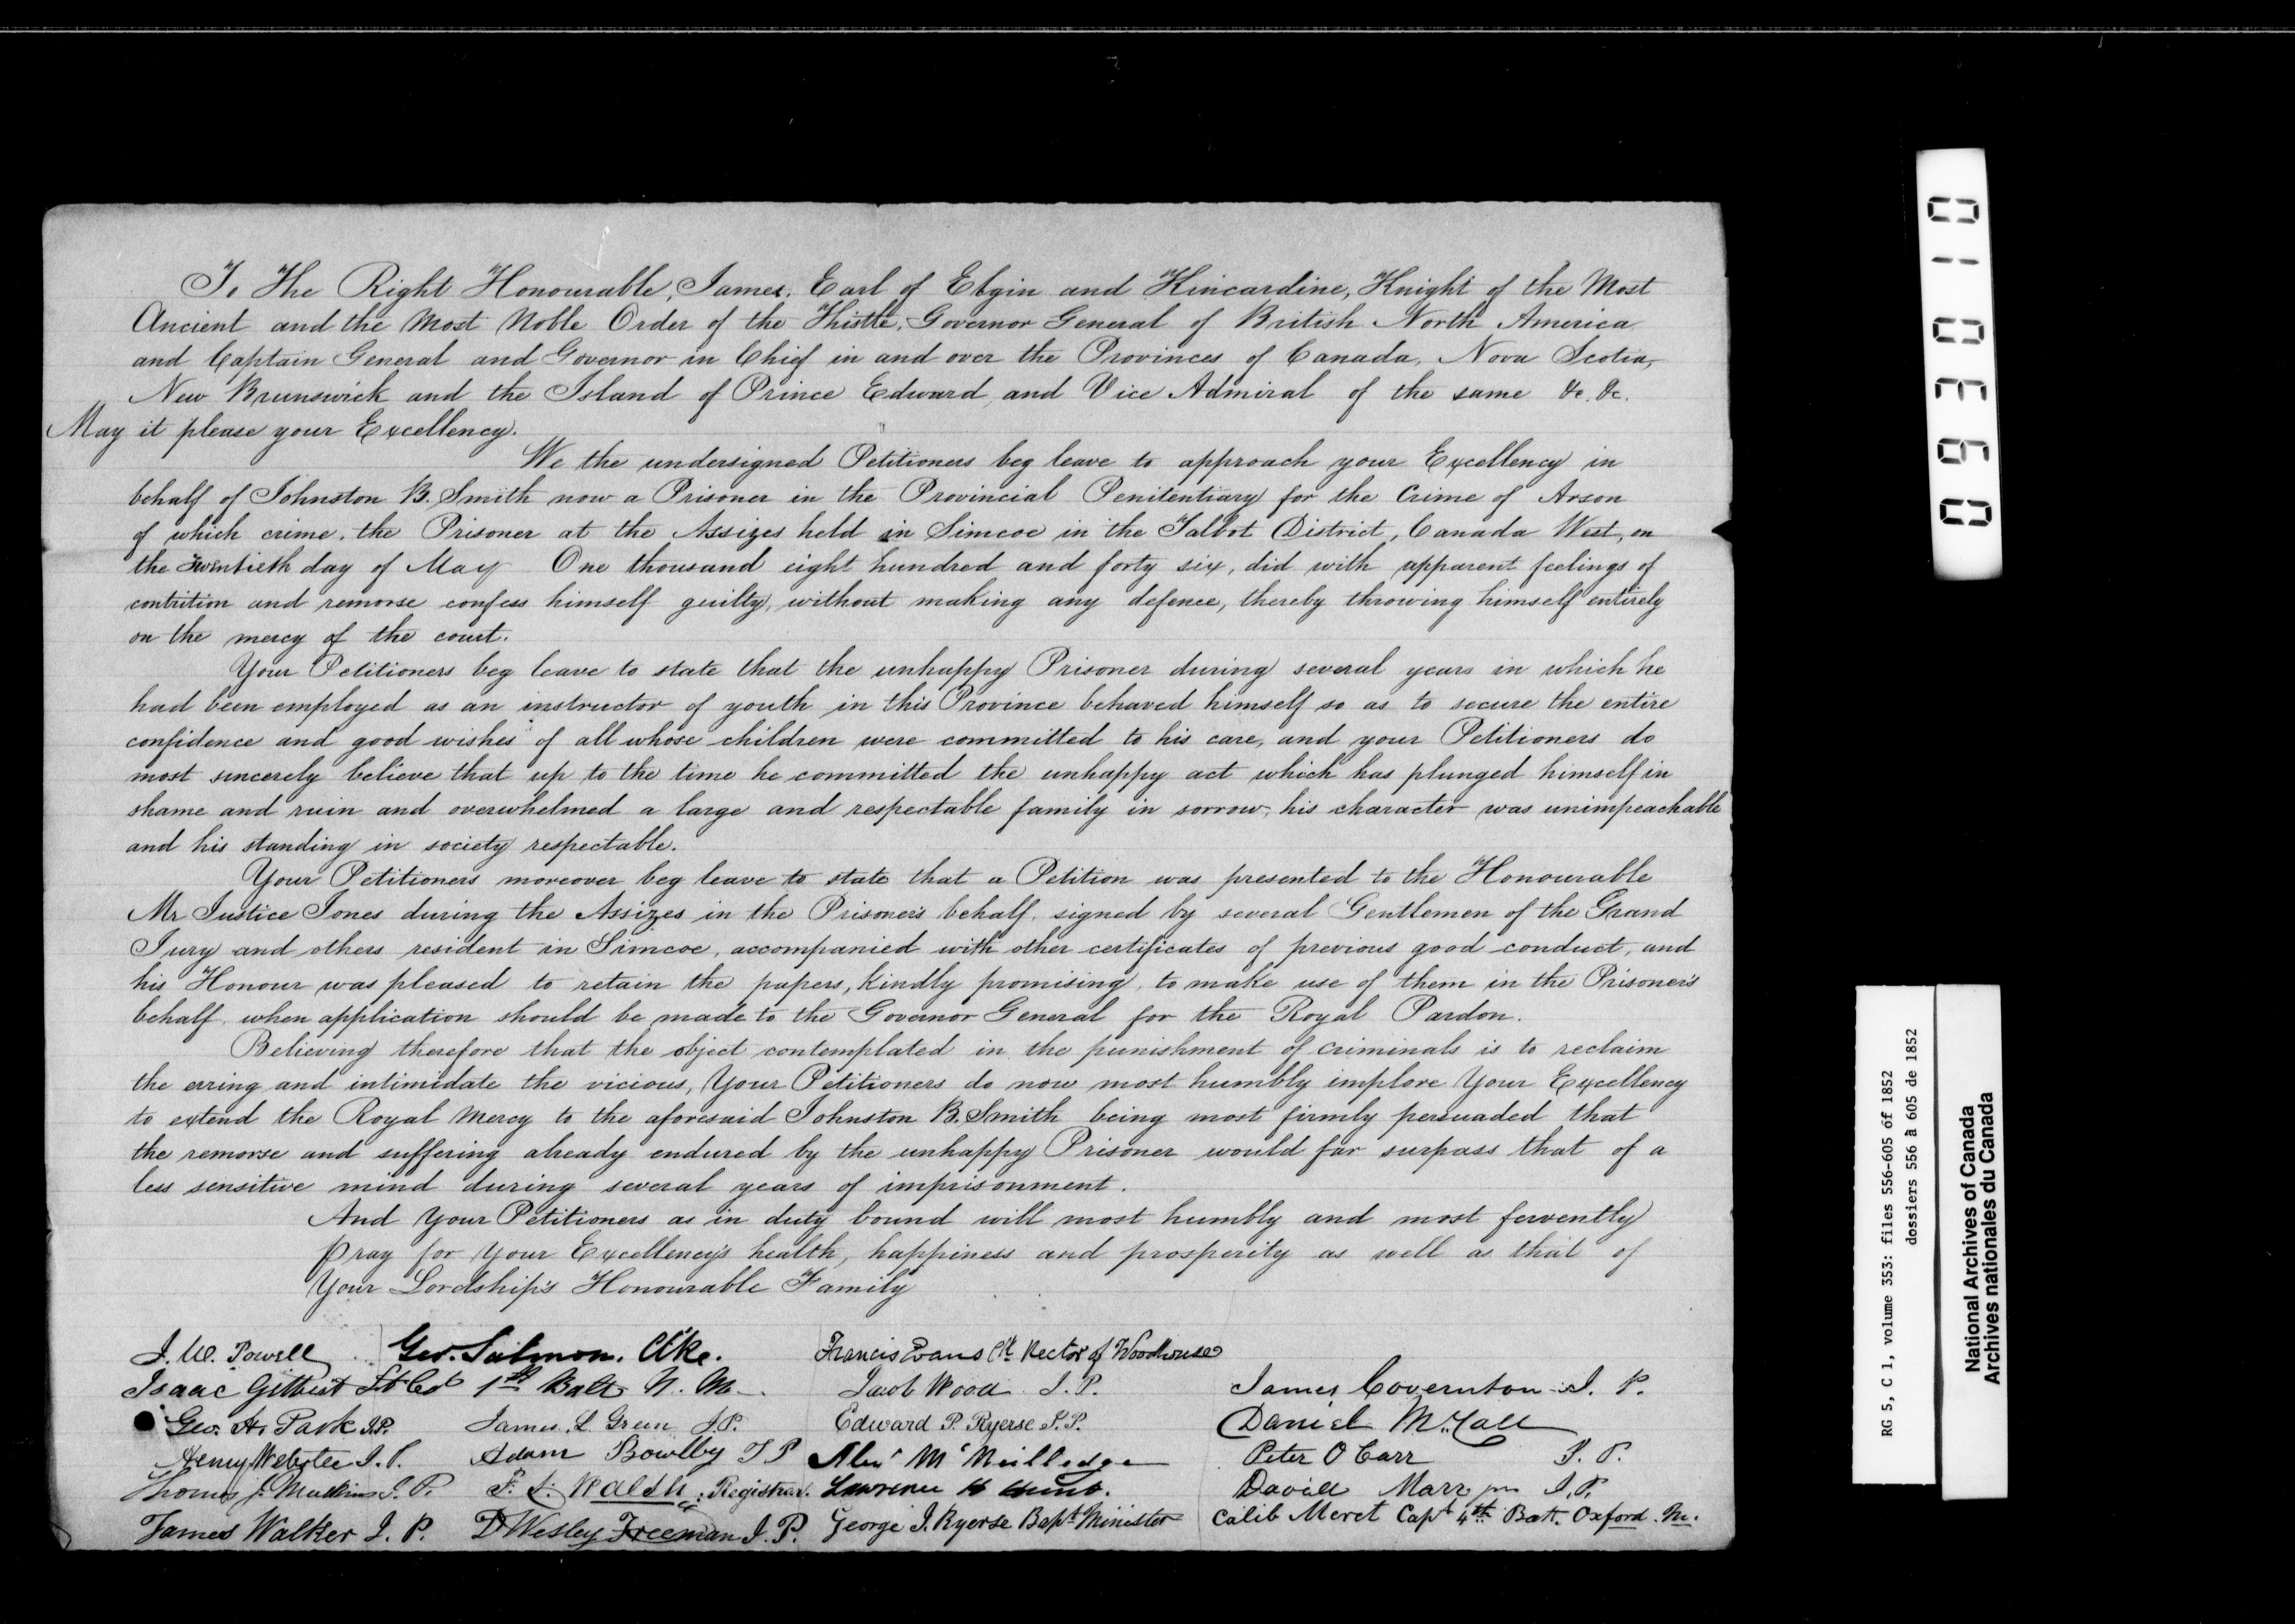 To The Right Honourable, James, Earl of Elgin and Kincardine, Knight of the Most
Ancient and the Most Noble Order of the Thistle, Governor General of British North America
and Captain General and Governor in Chief in and over the Provinces of Canada, Nova Scotia,
New Brunswick and the Island of Prince Edward, and Vice Admiral of the same &c. &c.
May it please your Excellency.
We the undersigned Petitioners beg leave to approach your Excellency in
behalf of Johnston B. Smith now a Prisoner in the Provincial Penitentiary for the Crime of Arson
of which crime, the Prisoner at the Assizes held in Simcoe in the Talbot District, Canada West, on
the twentieth day of May One thousand eight hundred and forty six, did with apparent feelings of
contrition and remorse confess himself guilty, without making any defence, thereby throwing himself entirely
on the mercy of the court.
Your Petitioners beg leave to state that the unhappy Prisoner during several years in which he
had been employed as an instructor of youth in this Province behaved himself so as to secure the entire
confidence and good wishes of all whose children were committed to his care, and your Petitioners do
most sincerely believe that up to the time he committed the unhappy act which has plunged himself in
shame and ruin and overwhelmed a large and respectable family in sorrow, his character was unimpeachable
and his standing in society respectable.
Your Petitioners moreover beg leave to state that a Petition was presented to the Honourable
Mr Justice Jones during the Assizes in the Prisoner's behalf, signed by several Gentlemen of the Grand
Jury and others resident in Simcoe, accompanied with other certificates of previous good conduct, and
his Honour was pleased to retain the papers, kindly promising, to make use of them in the Prisoner's
behalf, when application should be made to the Governor General for the Royal Pardon.
Believing therefore that the object contemplated in the punishment of criminals is to reclaim
the erring and intimidate the vicious, Your Petitioners do now most humbly implore Your Excellency
to extend the Royal Mercy to the aforesaid Johnston B. Smith being most firmly persuaded that
the remorse and suffering already endured by the unhappy Prisoner would far surpass that of a
less sensitive mind during several years of imprisonment.
And Your Petitioners as in duty bound will most humbly and most fervently
Pray for Your Excellency's health, happiness and prosperity as well as that of
Your Lordship's Honourable Family
J. W. Powell Geo. Salmon. Francis Evans Rector of Woodhouse
Isaac Gilbert Lt Col 1st Batt N. M. Jacob Wood J.P. James Covernton J. P.
Geo. H. Park J.P. James L. Green J.P. Edward P. Ryerse J.P. Daniel McCall
Henry Webster J.P. Adam Bowlby J P Alexr McNeilledge Peter O Carr J. P.
Thomas J. Mulkins J.P. F. L. Walsh, Registrar. Lawrence H Hunt. David Marr J.P.
James Walker J. P. D Wesley Freeman J. P. George J. Ryerse Bapt Minister Calib Meret Capt 4th Batt. Oxford. M.
093010
RG 5, C 1, volume 353: files 556-605 of 1852
dossiers 556 à 605 de 1852
National Archives of Canada
Archives nationales du Canada